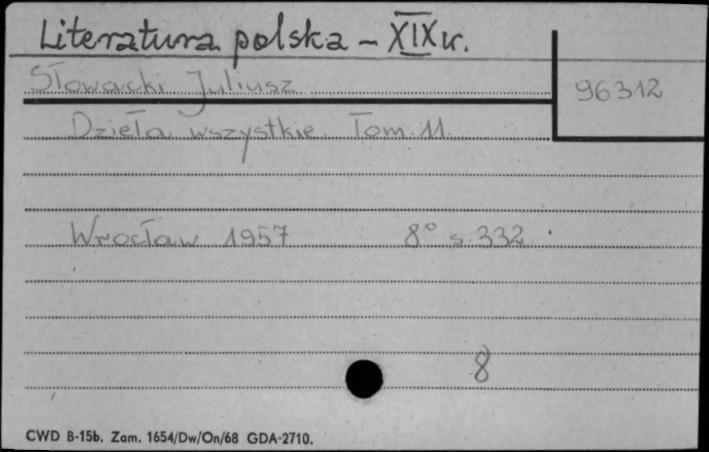 Literatura polska – XIX w.
Słowacki Juliusz
96312
Dzieła wszystkie. Tom 11.
Wrocław 1957 8° s. 332.
8
CWD B-15b. Zam. 1654/Dw/On/68 GDA-2710.